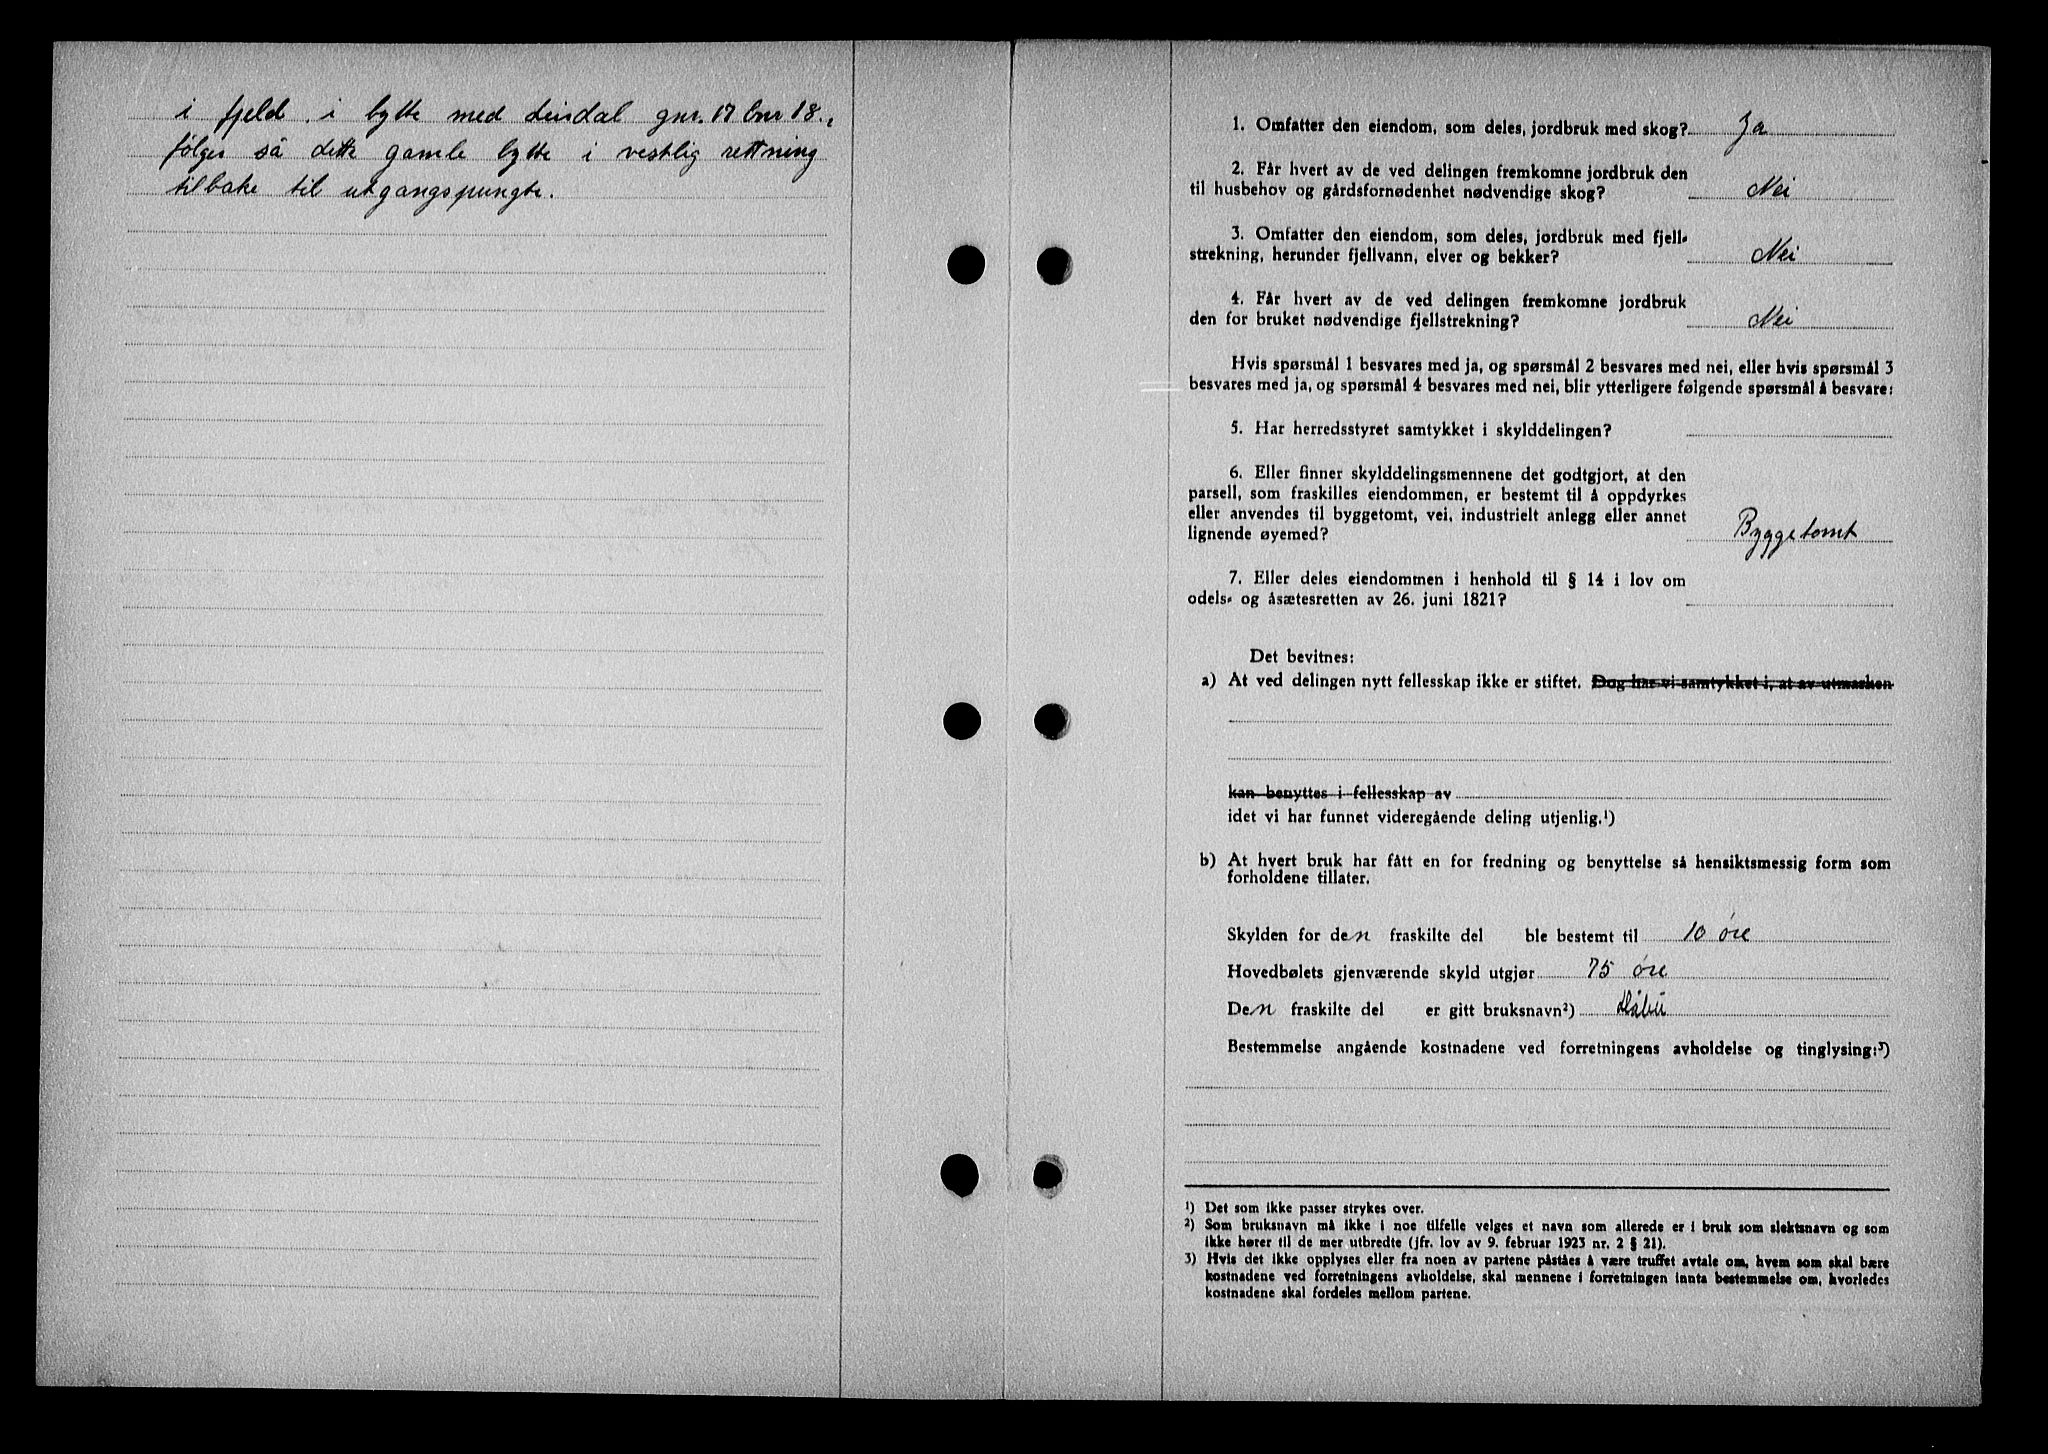 i fjeld i bytte med Lindal gnr. 17 bnr 18.,
følger så dette gamle bytte i vestlig rettning
tilbake til utgangspungte.
1. Omfatter den eiendom, som deles, jordbruk med skog? Ja
2. Får hvert av de ved delingen fremkomne jordbruk den
til husbehov og gårdsfornødenhet nødvendige skog? Nei
3. Omfatter den eiendom, som deles, jordbruk med fjell-
strekning, herunder fjellvann, elver og bekker? Nei
4. Får hvert av de ved delingen fremkomne jordbruk
den for bruket nødvendige fjellstrekning? Nei
Hvis spørsmål 1 besvares med ja, og spørsmål 2 besvares med nei, eller hvis spørsmål 3
besvares med ja, og spørsmål 4 besvares med nei, blir ytterligere følgende spørsmål å besvare:
5. Har herredsstyret samtykket i skylddelingen?
6. Eller finner skylddelingsmennene det godtgjort, at den
parsell, som fraskilles eiendommen, er bestemt til å oppdyrkes
eller anvendes til byggetomt, vei, industrielt anlegg eller annet
lignende øyemed? Byggetomt
7. Eller deles eiendommen i henhold til § 14 i lov om
odels- og åsætesretten av 26. juni 1821?
Det bevitnes:
a) At ved delingen nytt fellesskap ikke er stiftet. Dog har vi samtykket i, at av utmarken
kan benyttes i fellesskap av
idet vi har funnet videregående deling utjenlig.¹)
b) At hvert bruk har fått en for fredning og benyttelse så hensiktsmessig form som
forholdene tillater.
Skylden for den fraskilte del ble bestemt til 10 øre
Hovedbølets gjenværende skyld utgjør 75 øre
Den fraskilte del er gitt bruksnavn²)
Bestemmelse angående kostnadene ved forretningens avholdelse og tinglysing:³)
¹) Det som ikke passer strykes over.
²) Som bruksnavn må ikke i noe tilfelle velges et navn som allerede er i bruk som slektsnavn og som
ikke hører til de mer utbredte (jfr. lov av 9. februar 1923 nr. 2 § 21).
3) Hvis det ikke opplyses eller fra noen av partene påståes å være truffet avtale om, hvem som skal bære
kostnadene ved forretningens avholdelse, skal mennene i forretningen innta bestemmelse om, hvorledes
kostnadene skal fordeles mellom partene.